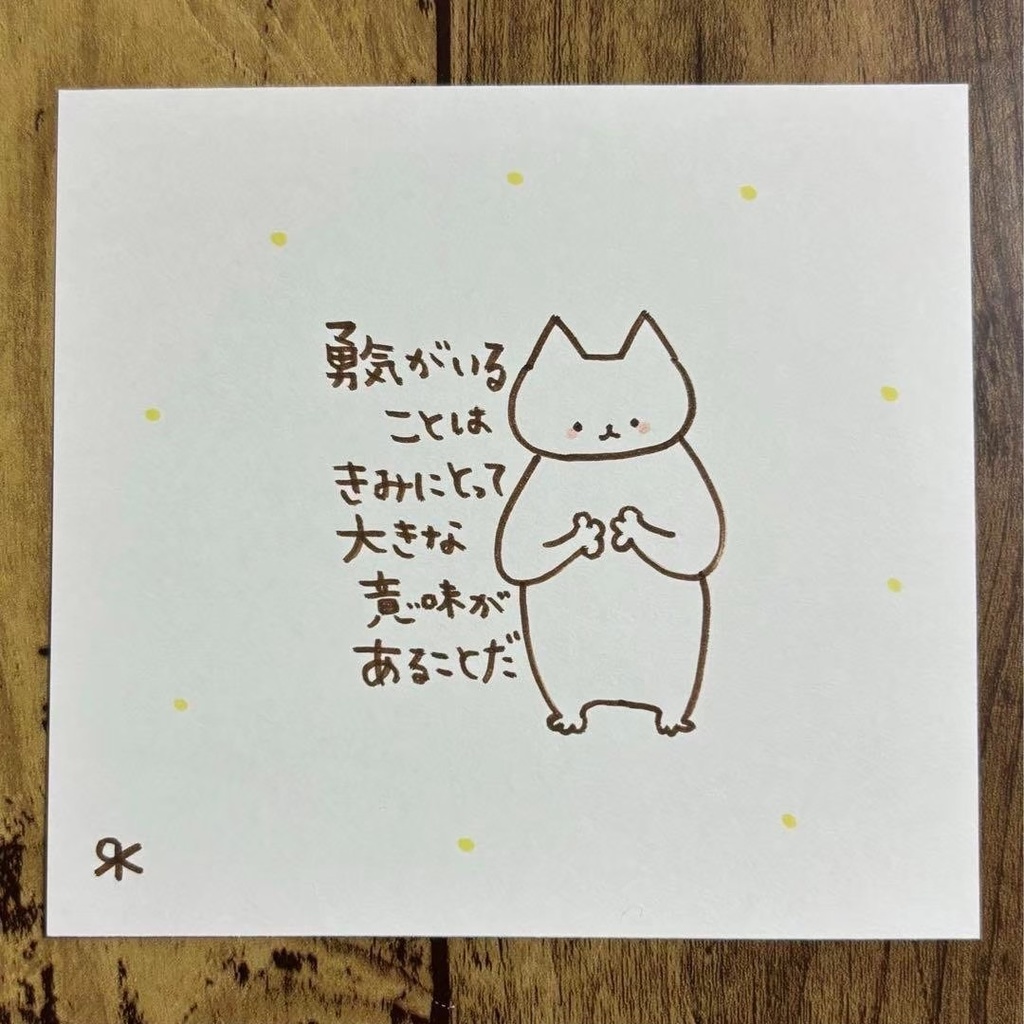 勇気がいる
ことは
きみにとって
大きな
意味が
あることだ